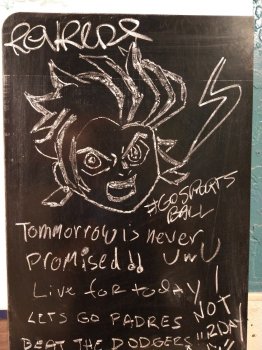 #GOSPORTS
BALL
Tommorrow is never
PROMISED!! UwU
Live for today!
LETS GO PADRES NOT
BEAT THE DODGERS